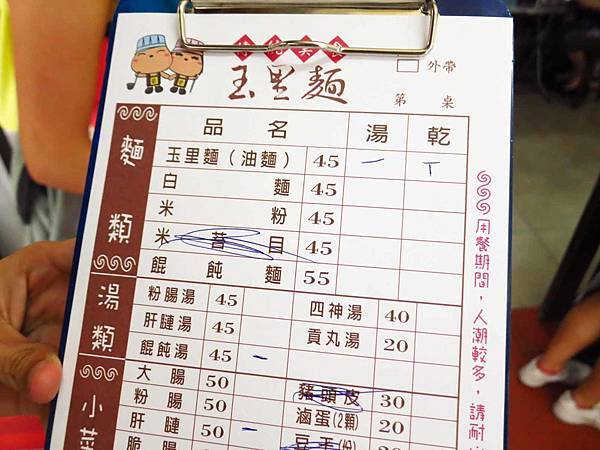 玉里麵
外帶
第 桌
麵類
品名 湯 乾
玉里麵(油麵) 45 一 T
白麵 45
米粉 45
米苔目 45
餛飩麵 55
湯類
粉腸湯 45 四神湯 40
肝膢湯 45 貢丸湯 20
餛飩湯 45 一
小菜
大腸 50 豬頭皮 30
粉腸 50 滷蛋(2顆) 20
肝膢 50 一 豆干(份)
脆腸
用餐期間,人潮較多,請耐